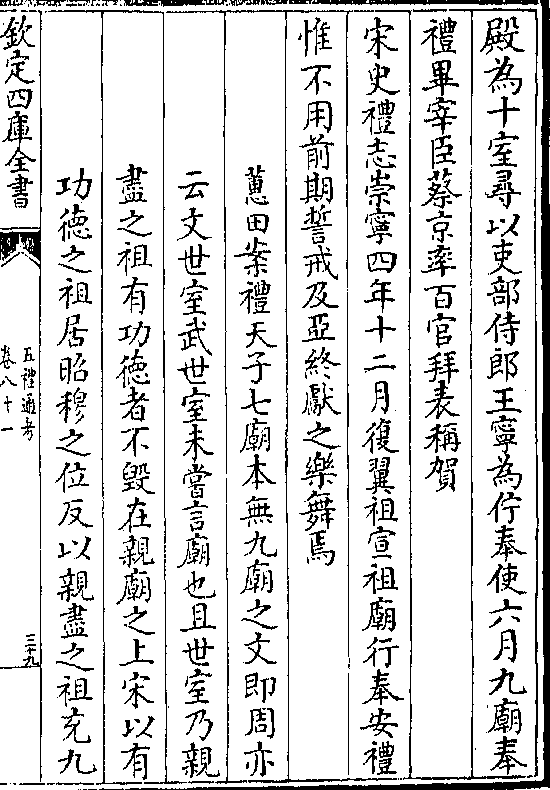 殿為十室尋以吏部侍郎王寧為修奉使六月九廟奉
禮畢宰臣蔡京率百官拜表稱賀
宋史禮志崇寧四年十二月復翼祖宣祖廟行奉安禮
惟不用前期誓戒及亞終獻之樂舞焉
蕙田案禮天子七廟本無九廟之文即周亦
云文世室武世室未嘗言廟也且世室乃親
盡之祖有功德者不毀在親廟之上宋以有
功德之祖居昭穆之位反以親盡之祖充九
欽定四庫全書
五禮通考
卷八十一
三十九